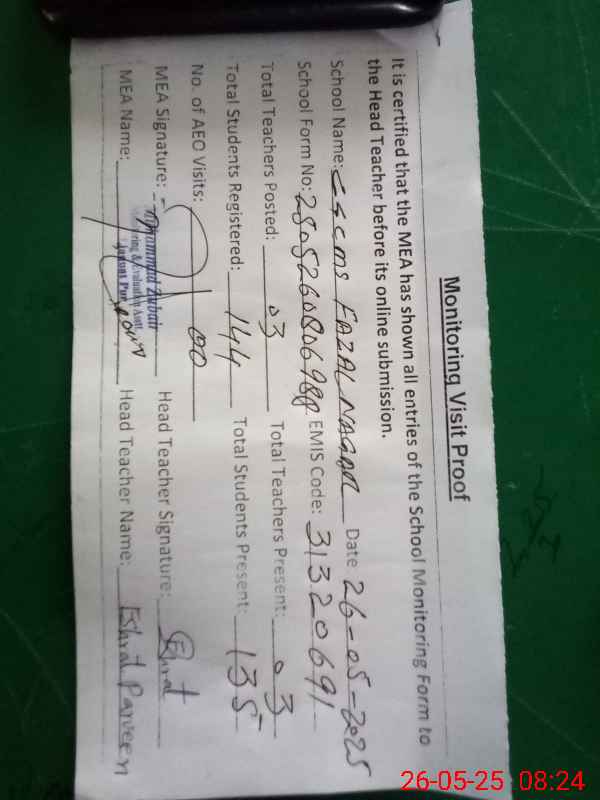 Monitoring Visit Proof
It is certified that the MEA has shown all entries of the School Monitoring Form to
the Head Teacher before its online submission.
School Name: FAZAL NAGAR Date 26-05-2025
School Form No: EMIS Code: 31320691
Total Teachers Posted: 03 Total Teachers Present: 03
Total Students Registered: 144 Total Students Present: 135
No. of AEO Visits: 00
MEA Signature: Head Teacher Signature: Eshrat
Muhammad Zubair
MEA Name: Head Teacher Name: Eshrat Parveen
26-05-25 08:24